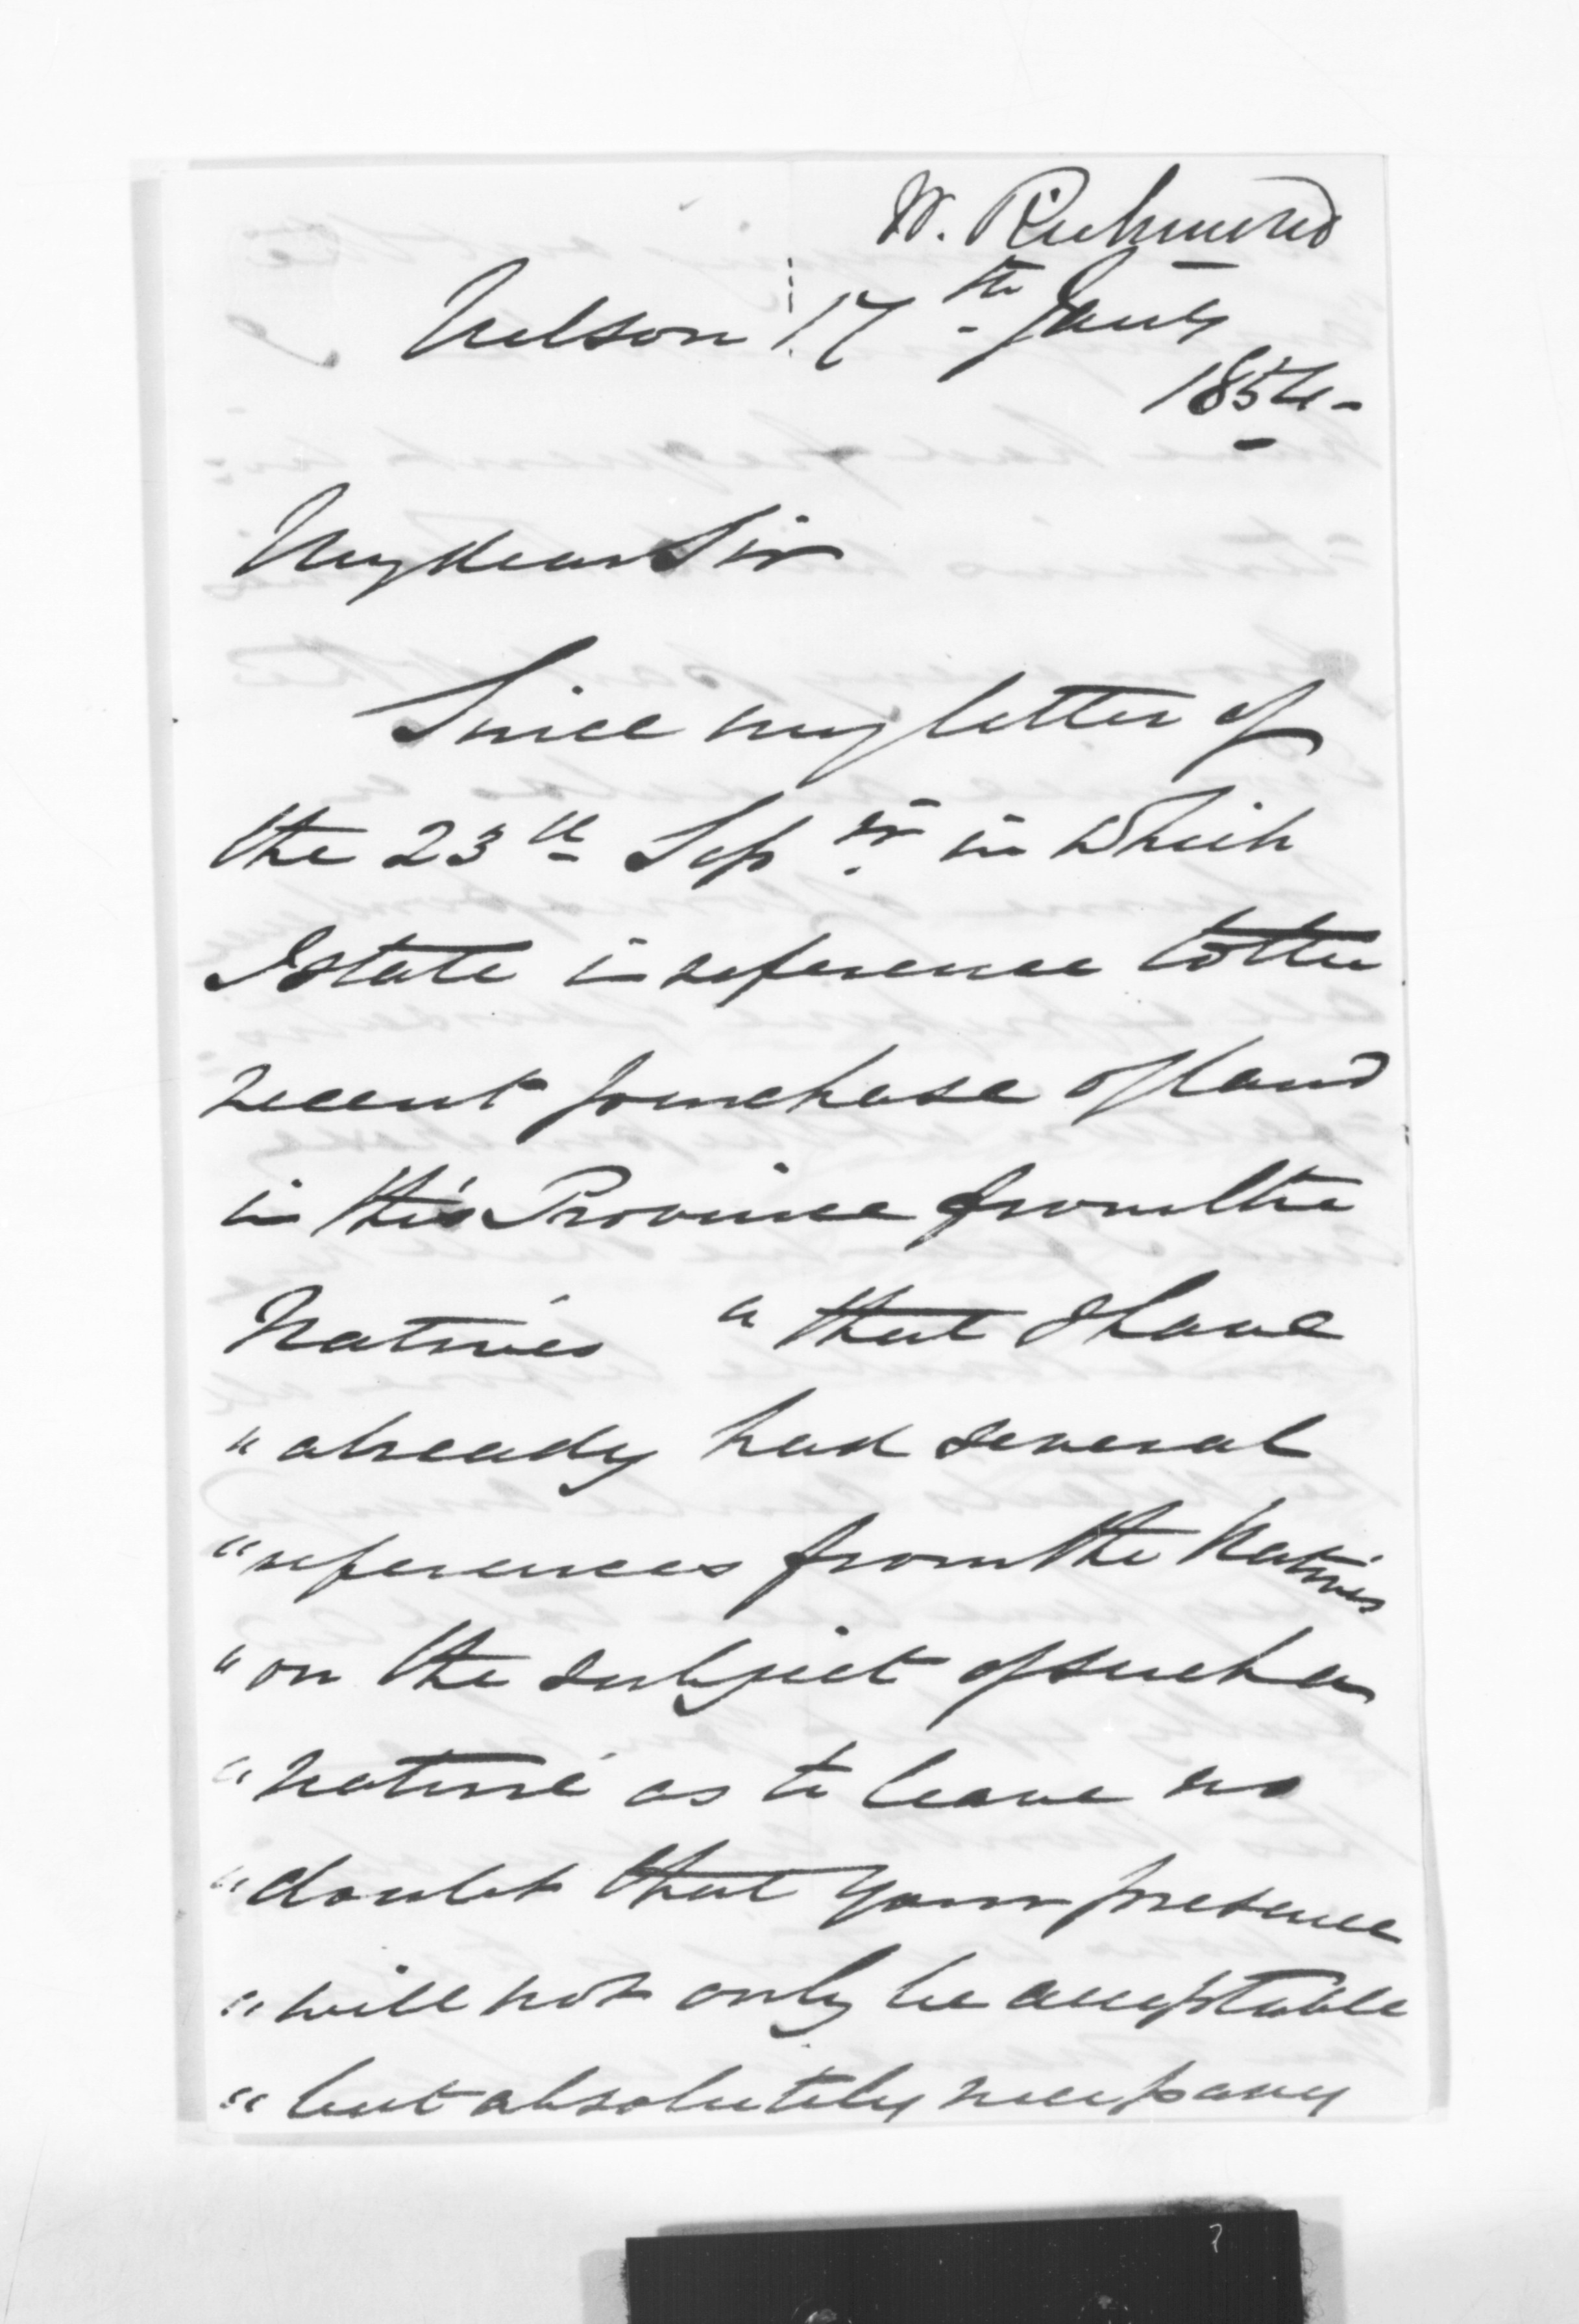 W. Richmond
Nelson 17th Jany
1854 -
My dear Sir
Since my letter of
the 23rd Sepr. in which
I state in reference to the
recent purchase of land
in this Province from the
Natives " that I have
" already had several
" references from the Natives
" on the subject of such a
" nature as to leave no
" doubt that your presence
" will not only be acceptable
" but absolutely necessary